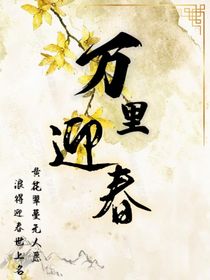 万里
迎春
黄花翠蔓无人愿
浪得迎春世上名